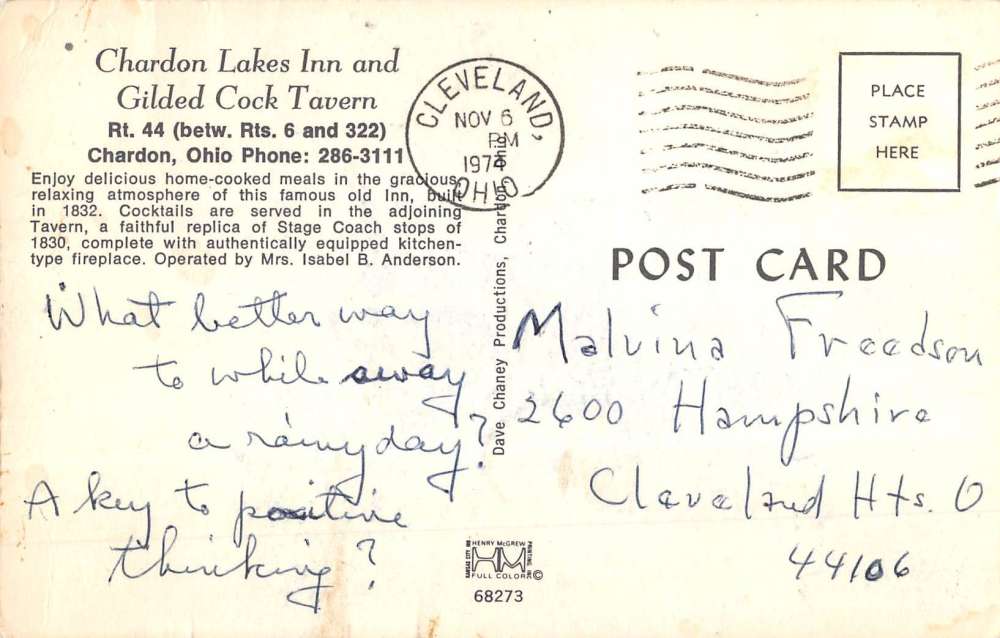 Chardon Lakes Inn and
Gilded Cock Tavern
Rt. 44 (betw. Rts. 6 and 322)
Chardon, Ohio Phone: 286-3111
Enjoy delicious home-cooked meals in the gracious,
relaxing atmosphere of this famous old Inn, built
in 1832. Cocktails are served in the adjoining
Tavern, a faithful replica of Stage Coach stops of
1830, complete with authentically equipped kitchen-
type fireplace. Operated by Mrs. Isabel B. Anderson.
CLEVELAND,
NOV 6
PM
1974
OHIO
PLACE
STAMP
HERE
POST CARD
What better way
to while away
a rainy day?
A key to positive
thinking?
Dave Chaney Productions, Chardon, Ohio
Malvina Freedson
2600 Hampshire
Cleveland Hts. O
44106
KANSAS CITY MO
HENRY McGREW
PRINTING, INC.
HM
FULL COLOR ©
68273